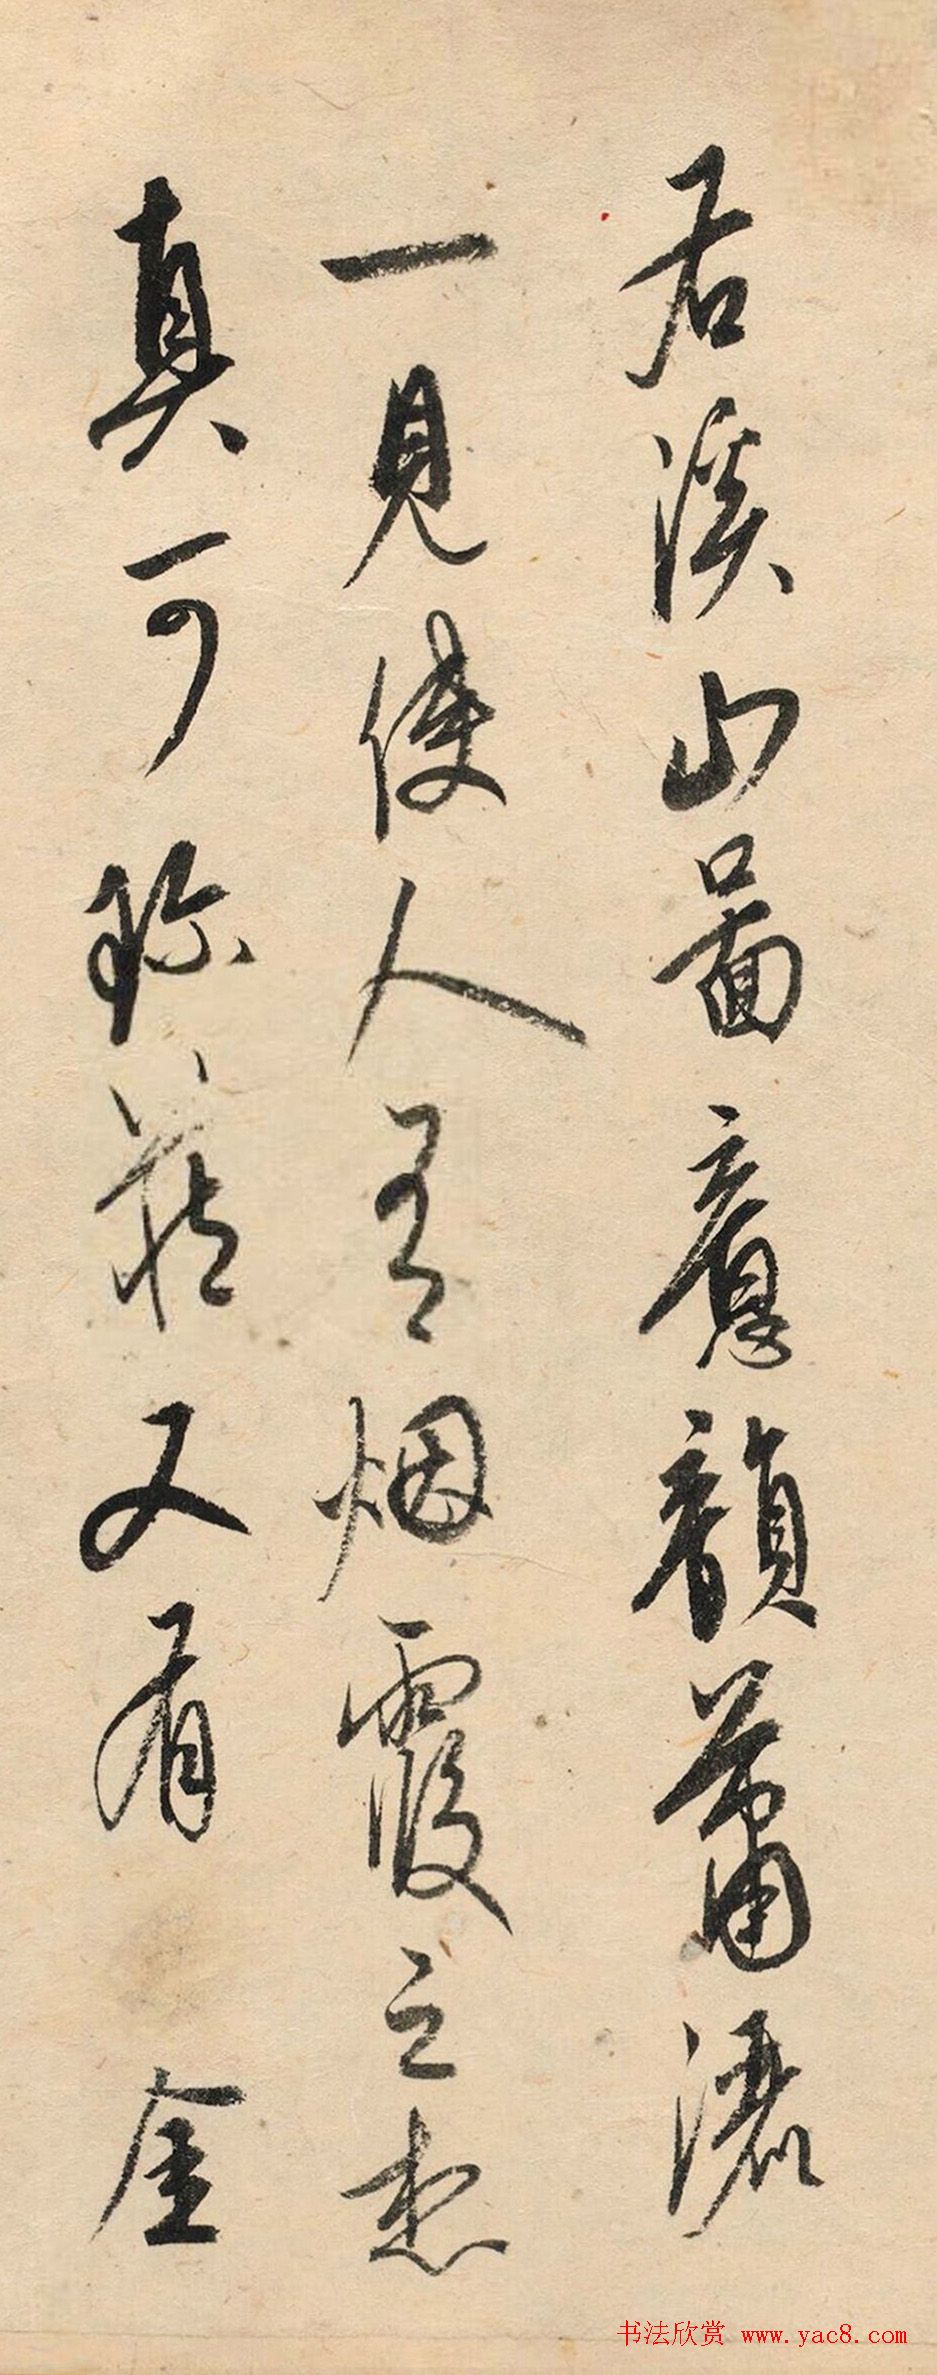 右溪山圖意韻蕭灑
一見使人有烟霞之想
真可珍藏又有 金
书法欣赏 www.yac8.com